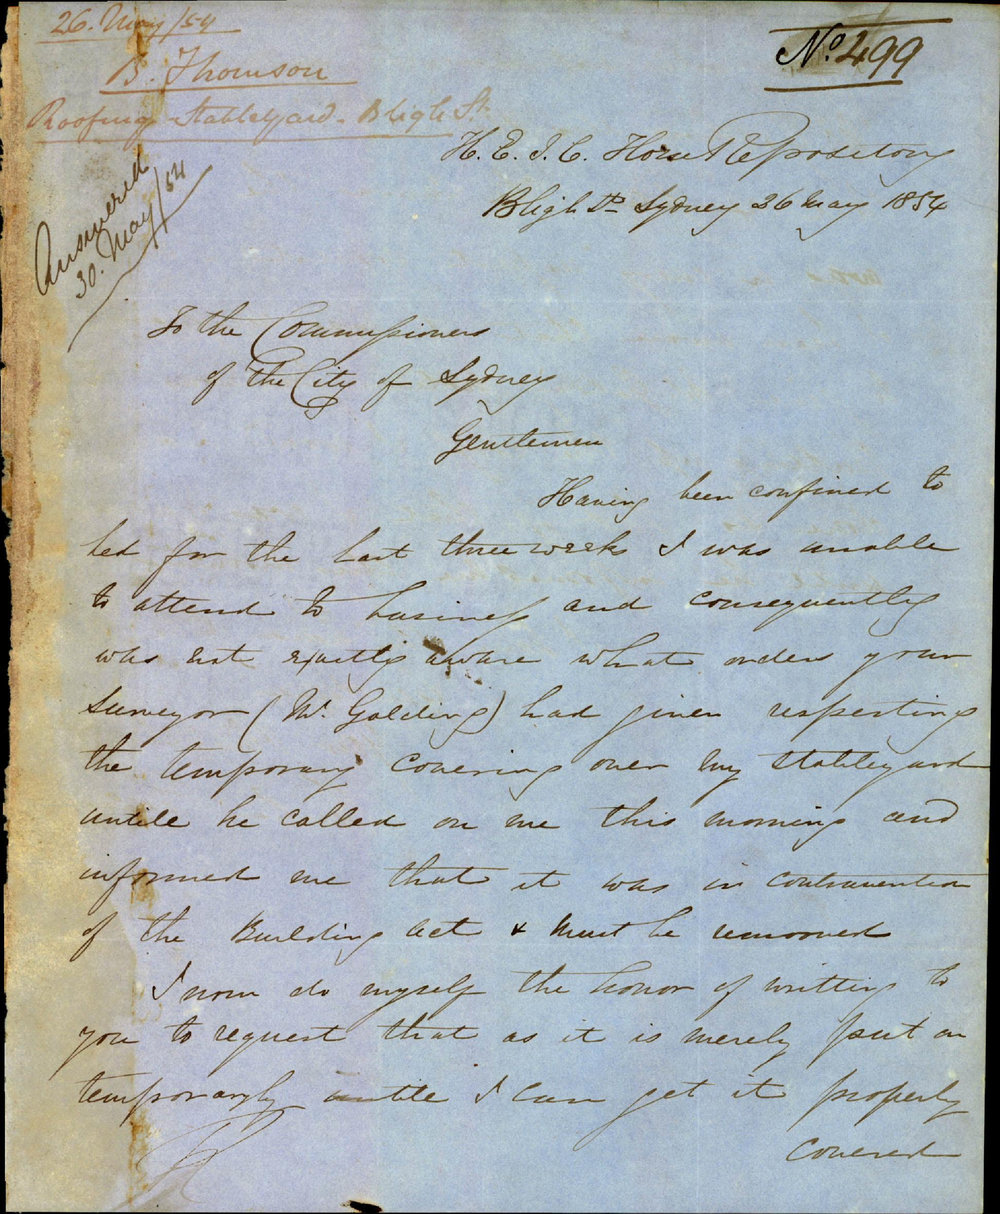 26. May/54
B. Thomson
Roofing Stableyard - Bligh St.
No. 499
Answered
30. May/54
H. E. I. C. Horse Repository
Bligh St. Sydney 26 May 1854
To the Commissioners
of the City of Sydney
Gentlemen
Having been confined to
bed for the last three weeks I was unable
to attend to business and consequently
was not exactly aware what orders your
Surveyor (Mr. Golding) had given respecting
the temporary covering over my stableyard
untile he called on me this morning and
informed me that it was in contravention
of the Building act & must be remooved
I now do myself the honor of writting to
you to request that as it is merely put on
temporaryly untile I can get it properly
covered